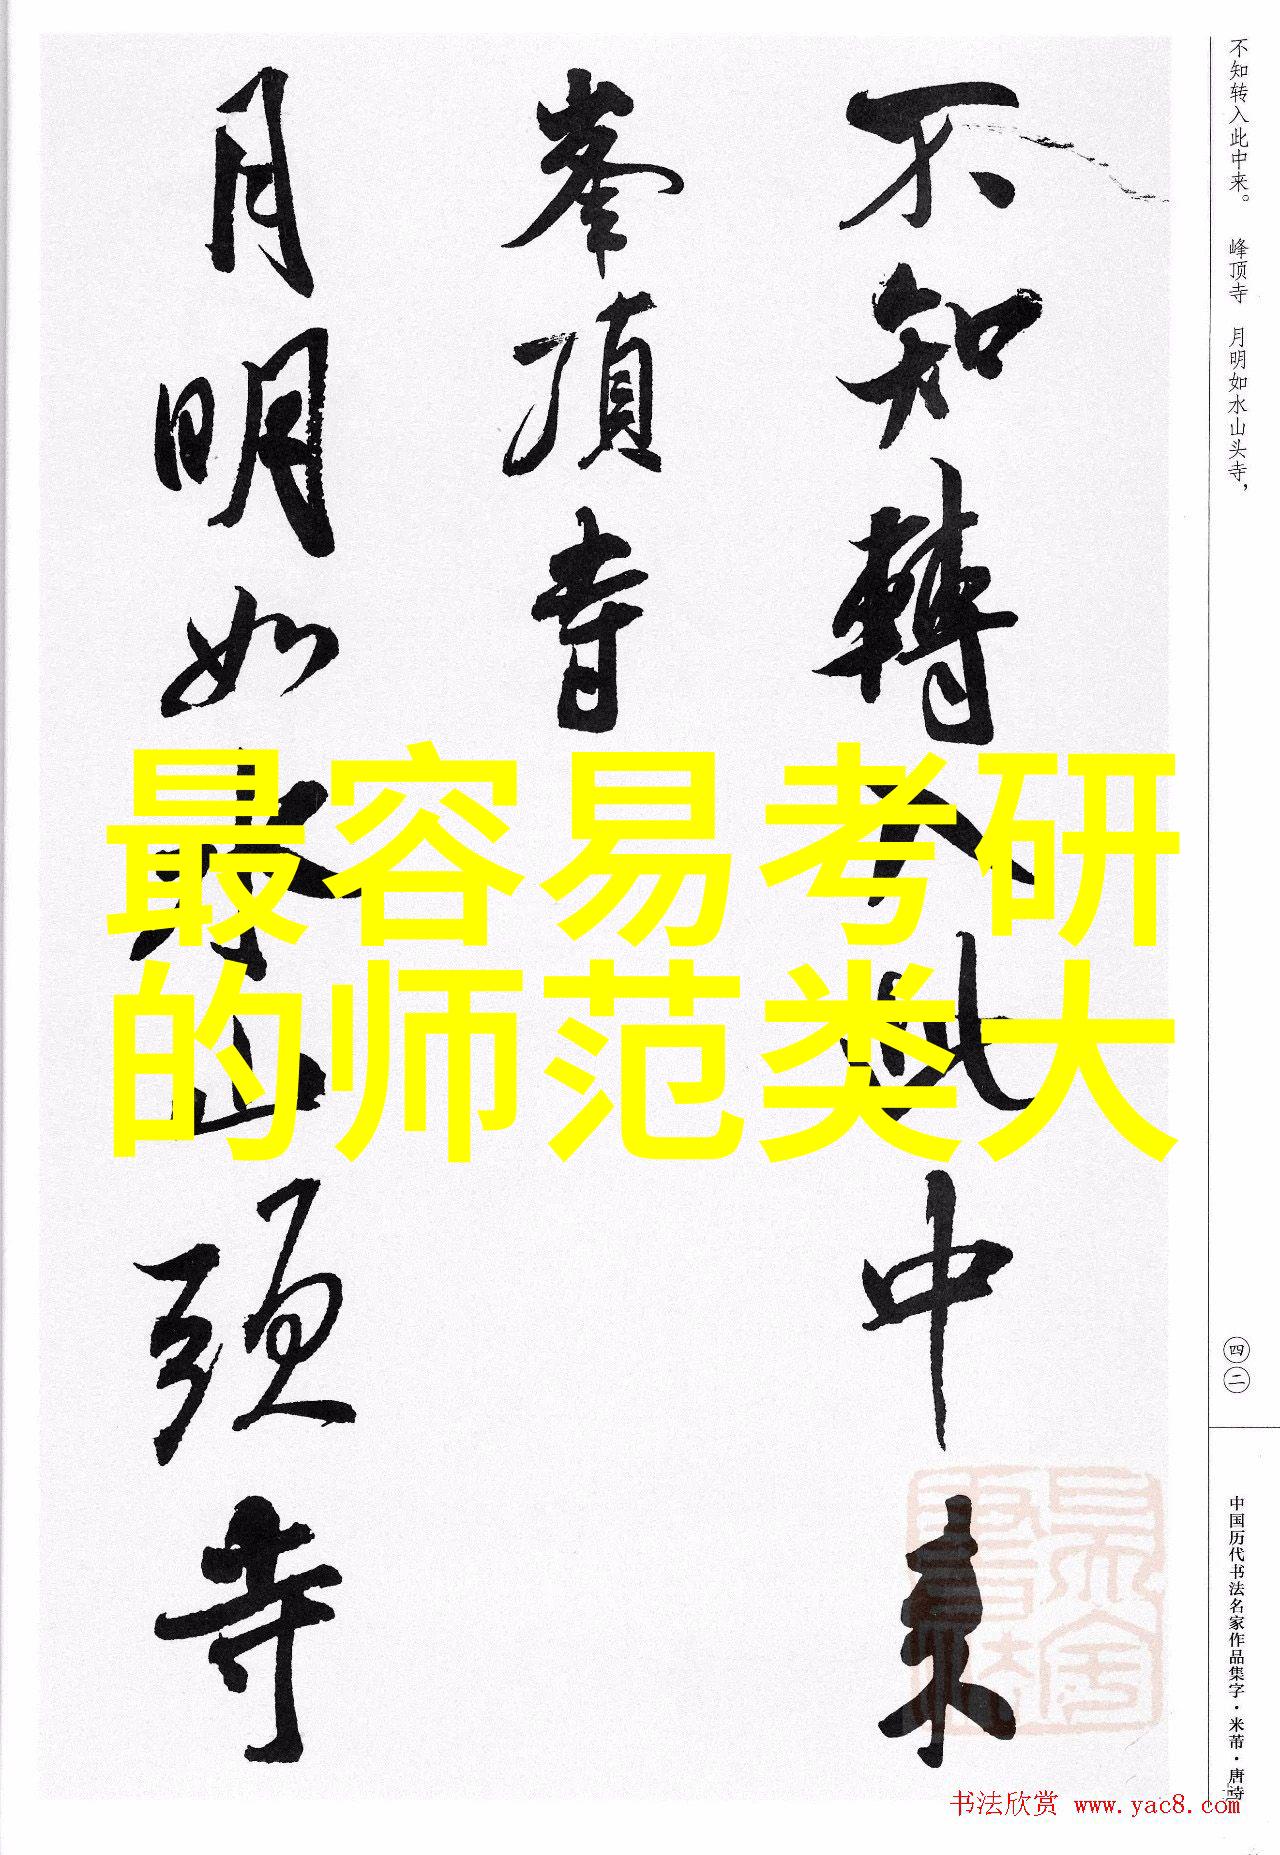 不知轉入此中来
峯頂寺
月明如水山頭寺
最容易考研
的师范类大
不知转入此中来。 峰顶寺 月明如水山头寺，
四二
中国历代书法名家作品集字·米芾·唐诗
书法欣赏 www.yac8.com